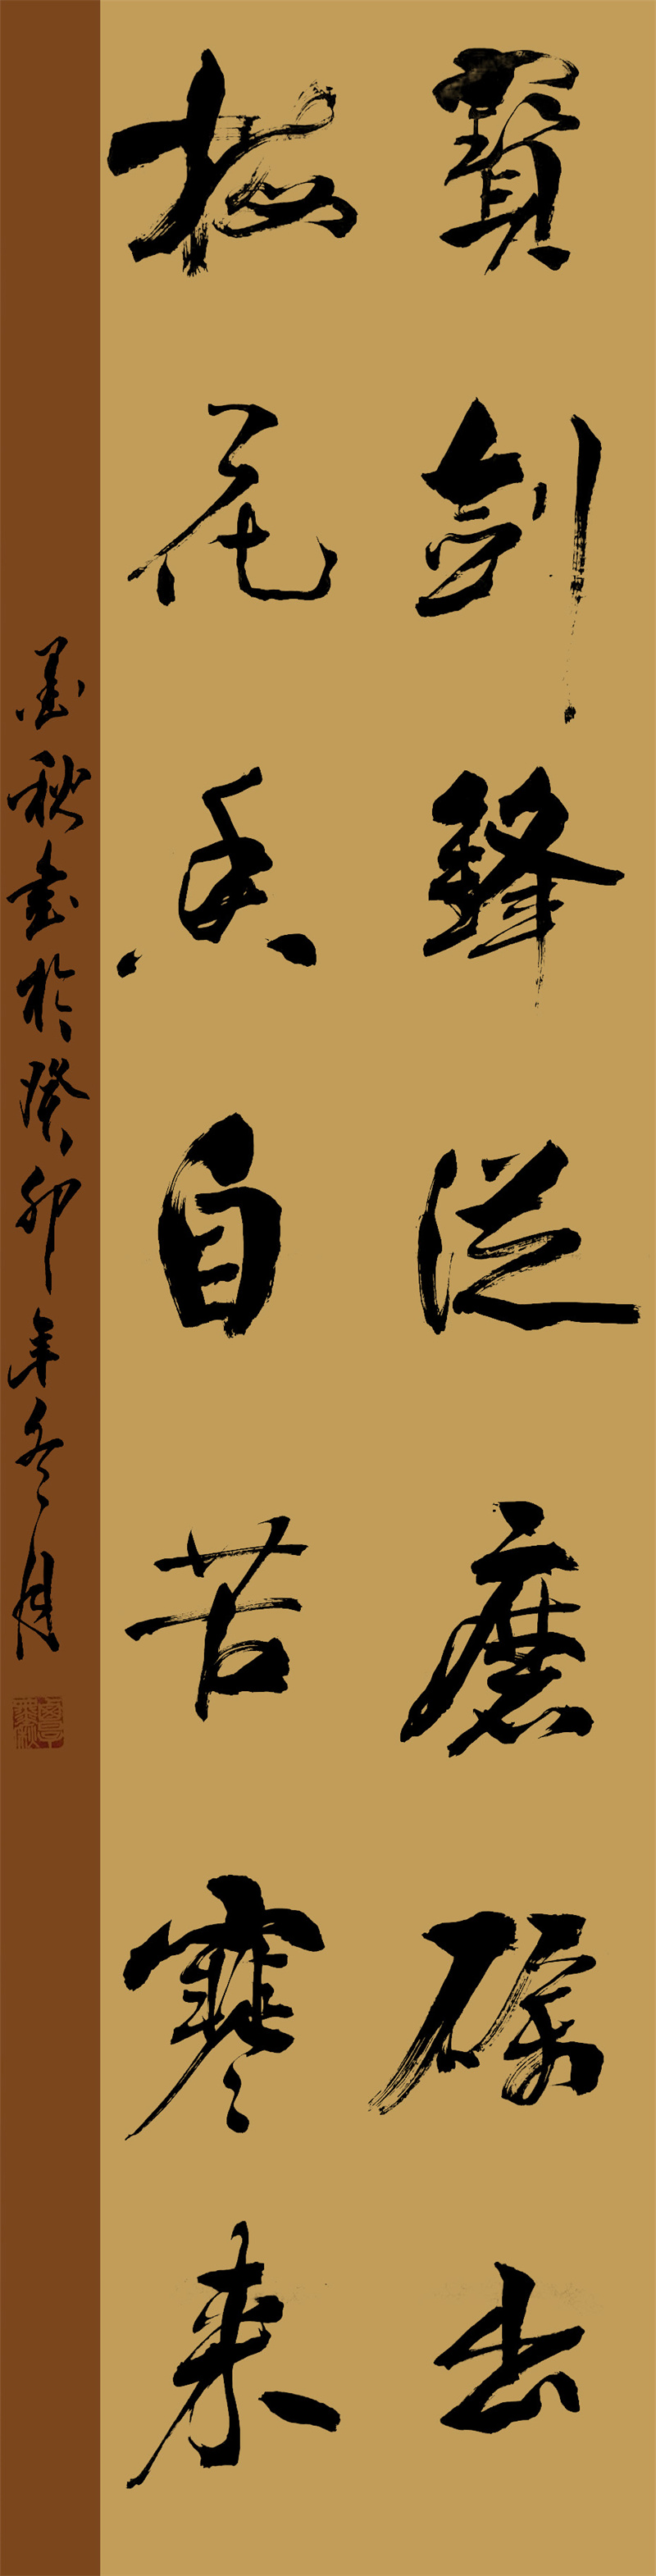 寶劍鋒从磨砺出
梅花香自苦寒来
墨秋书於癸卯年冬月